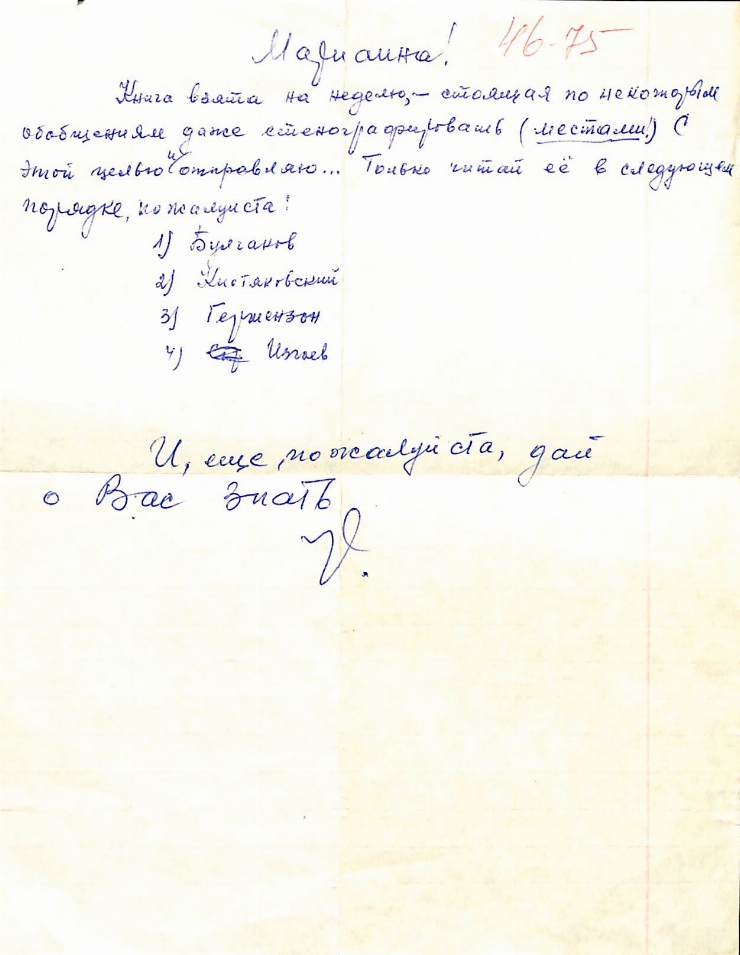 Марианна! 46-75
Книга взята на неделю, – стоящая по некоторым
обобщениям даже стенографировать (местами!) С
этой целью и отправляю... Только читай её в следующем
порядке, пожалуйста!
1) Булгаков
2) Кистяковский
3) Гершензон
4) Изгоев
И, еще, пожалуйста, дай
о Вас знать